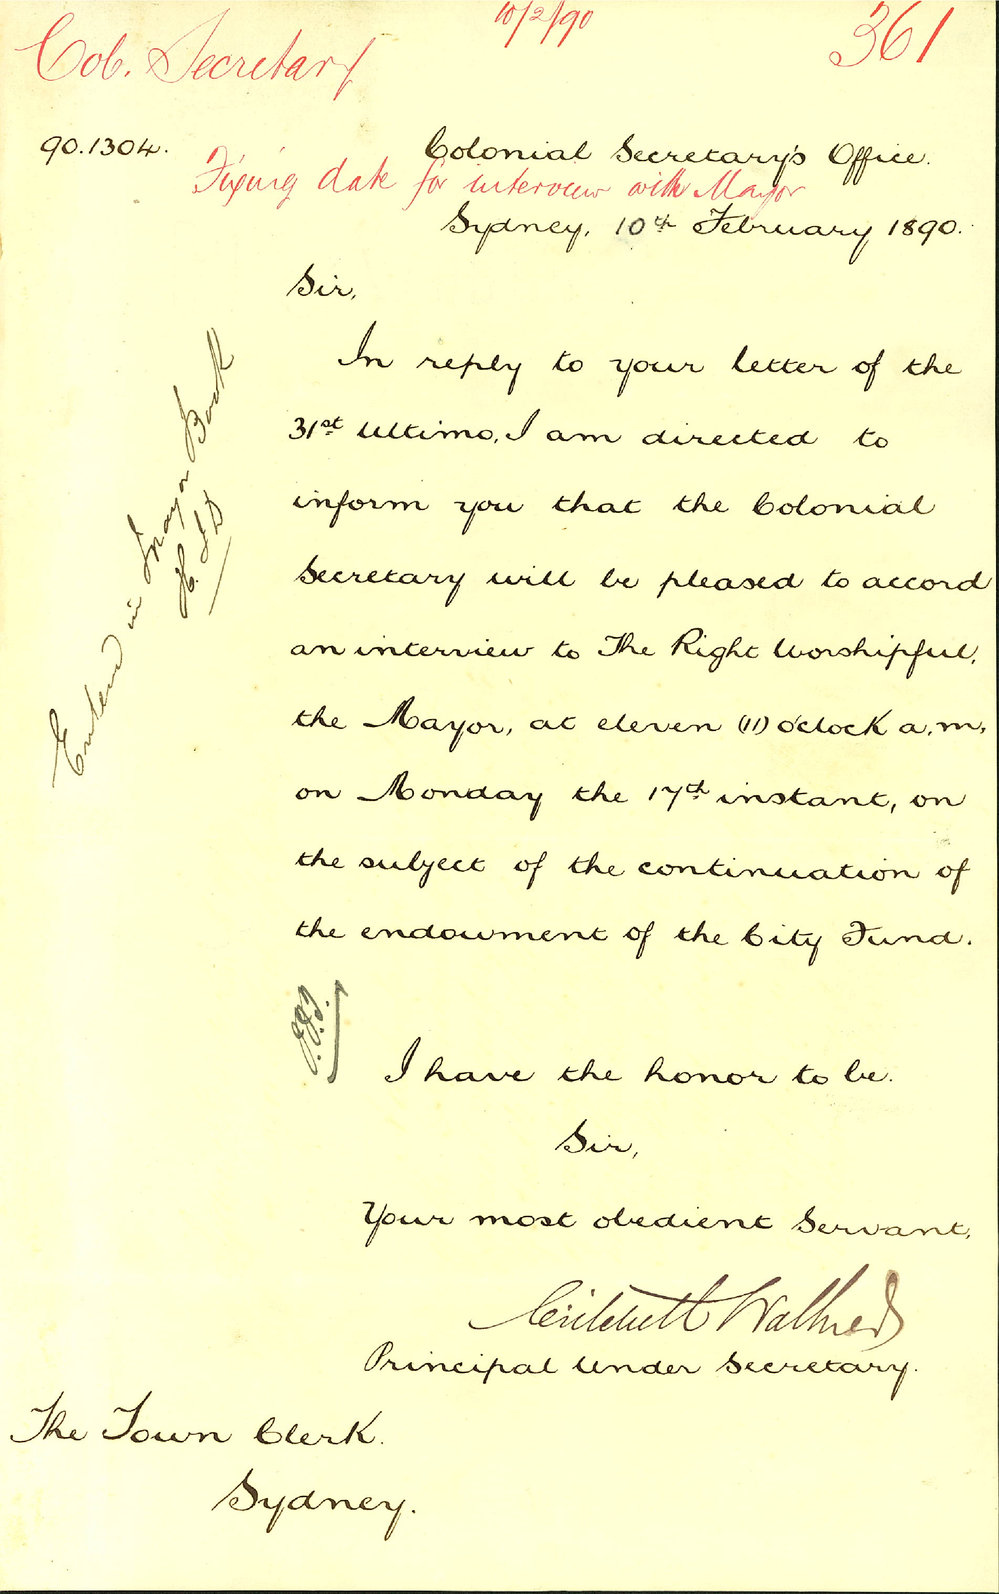 10/2/90
361
Col. Secretary
90.1304.
Colonial Secretary's Office.
Fixing date for interview with Mayor
Sydney, 10th February 1890.
Sir,
In reply to your letter of the
31st Ultimo, I am directed to
inform you that the Colonial
Secretary will be pleased to accord
an interview to The Right Worshipful,
the Mayor, at eleven (11) o'clock a.m,
on Monday the 17th instant, on
the subject of the continuation of
the endowment of the City Fund.
Entered in Mayor Book
I have the honor to be.
Sir,
Your most obedient Servant,
Critchett Walker
Principal Under Secretary.
The Town Clerk.
Sydney.